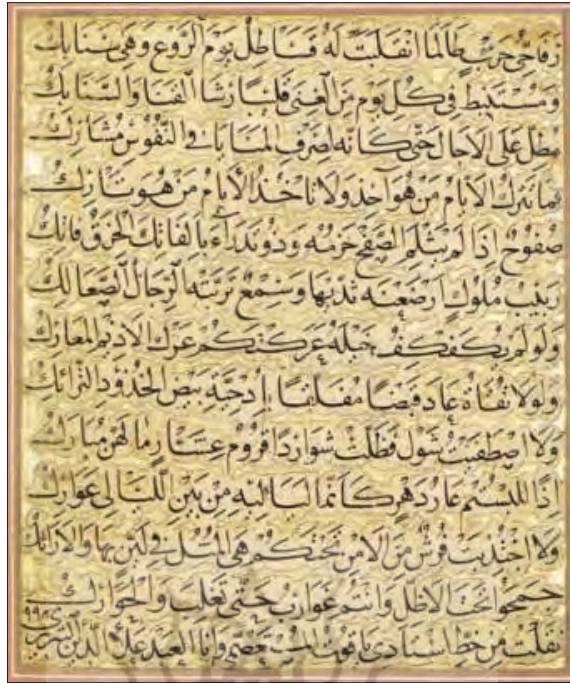 حرب طالما انقلبت له قساطل يوم الروع وهي سبائك
ومستنبط في كل يوم من الغنى قليبا رشاها القنا والسنابك
مطل على الاجال حتى كأنه لصرف المنايا في النفوس مشارك
فما تترك الايام من هو آخذ ولا تاخذ الايام من هو تارك
صفوح إذا لم يثلم الصفح حزمه وذو تدراء بالفاتك الخرق فاتك
ربيب ملوك ارضعته ثديها وسمع تربته الرجال الصعالك
ولو لم يكفكف خيله عركتكم عرك الاديم المعارك
ولولا تقاه عاد قيضا مفلقا بادحيه بيض الخدور الترائك
ولا اصطفيت شول فظلت شواردا قروم عشار ما لهن مبارك
إذا للبستم عار دهر كانما لياليه من بين الليالي عوارك
ولا اجتذبت فرش من الامن تحتكم هي المثل في لين بها والارائك
وانتم غوارب حتى تغلب والحوارك
نقلت من خط استادي ياقوت المستعصمي وانا العبد علاء الدين